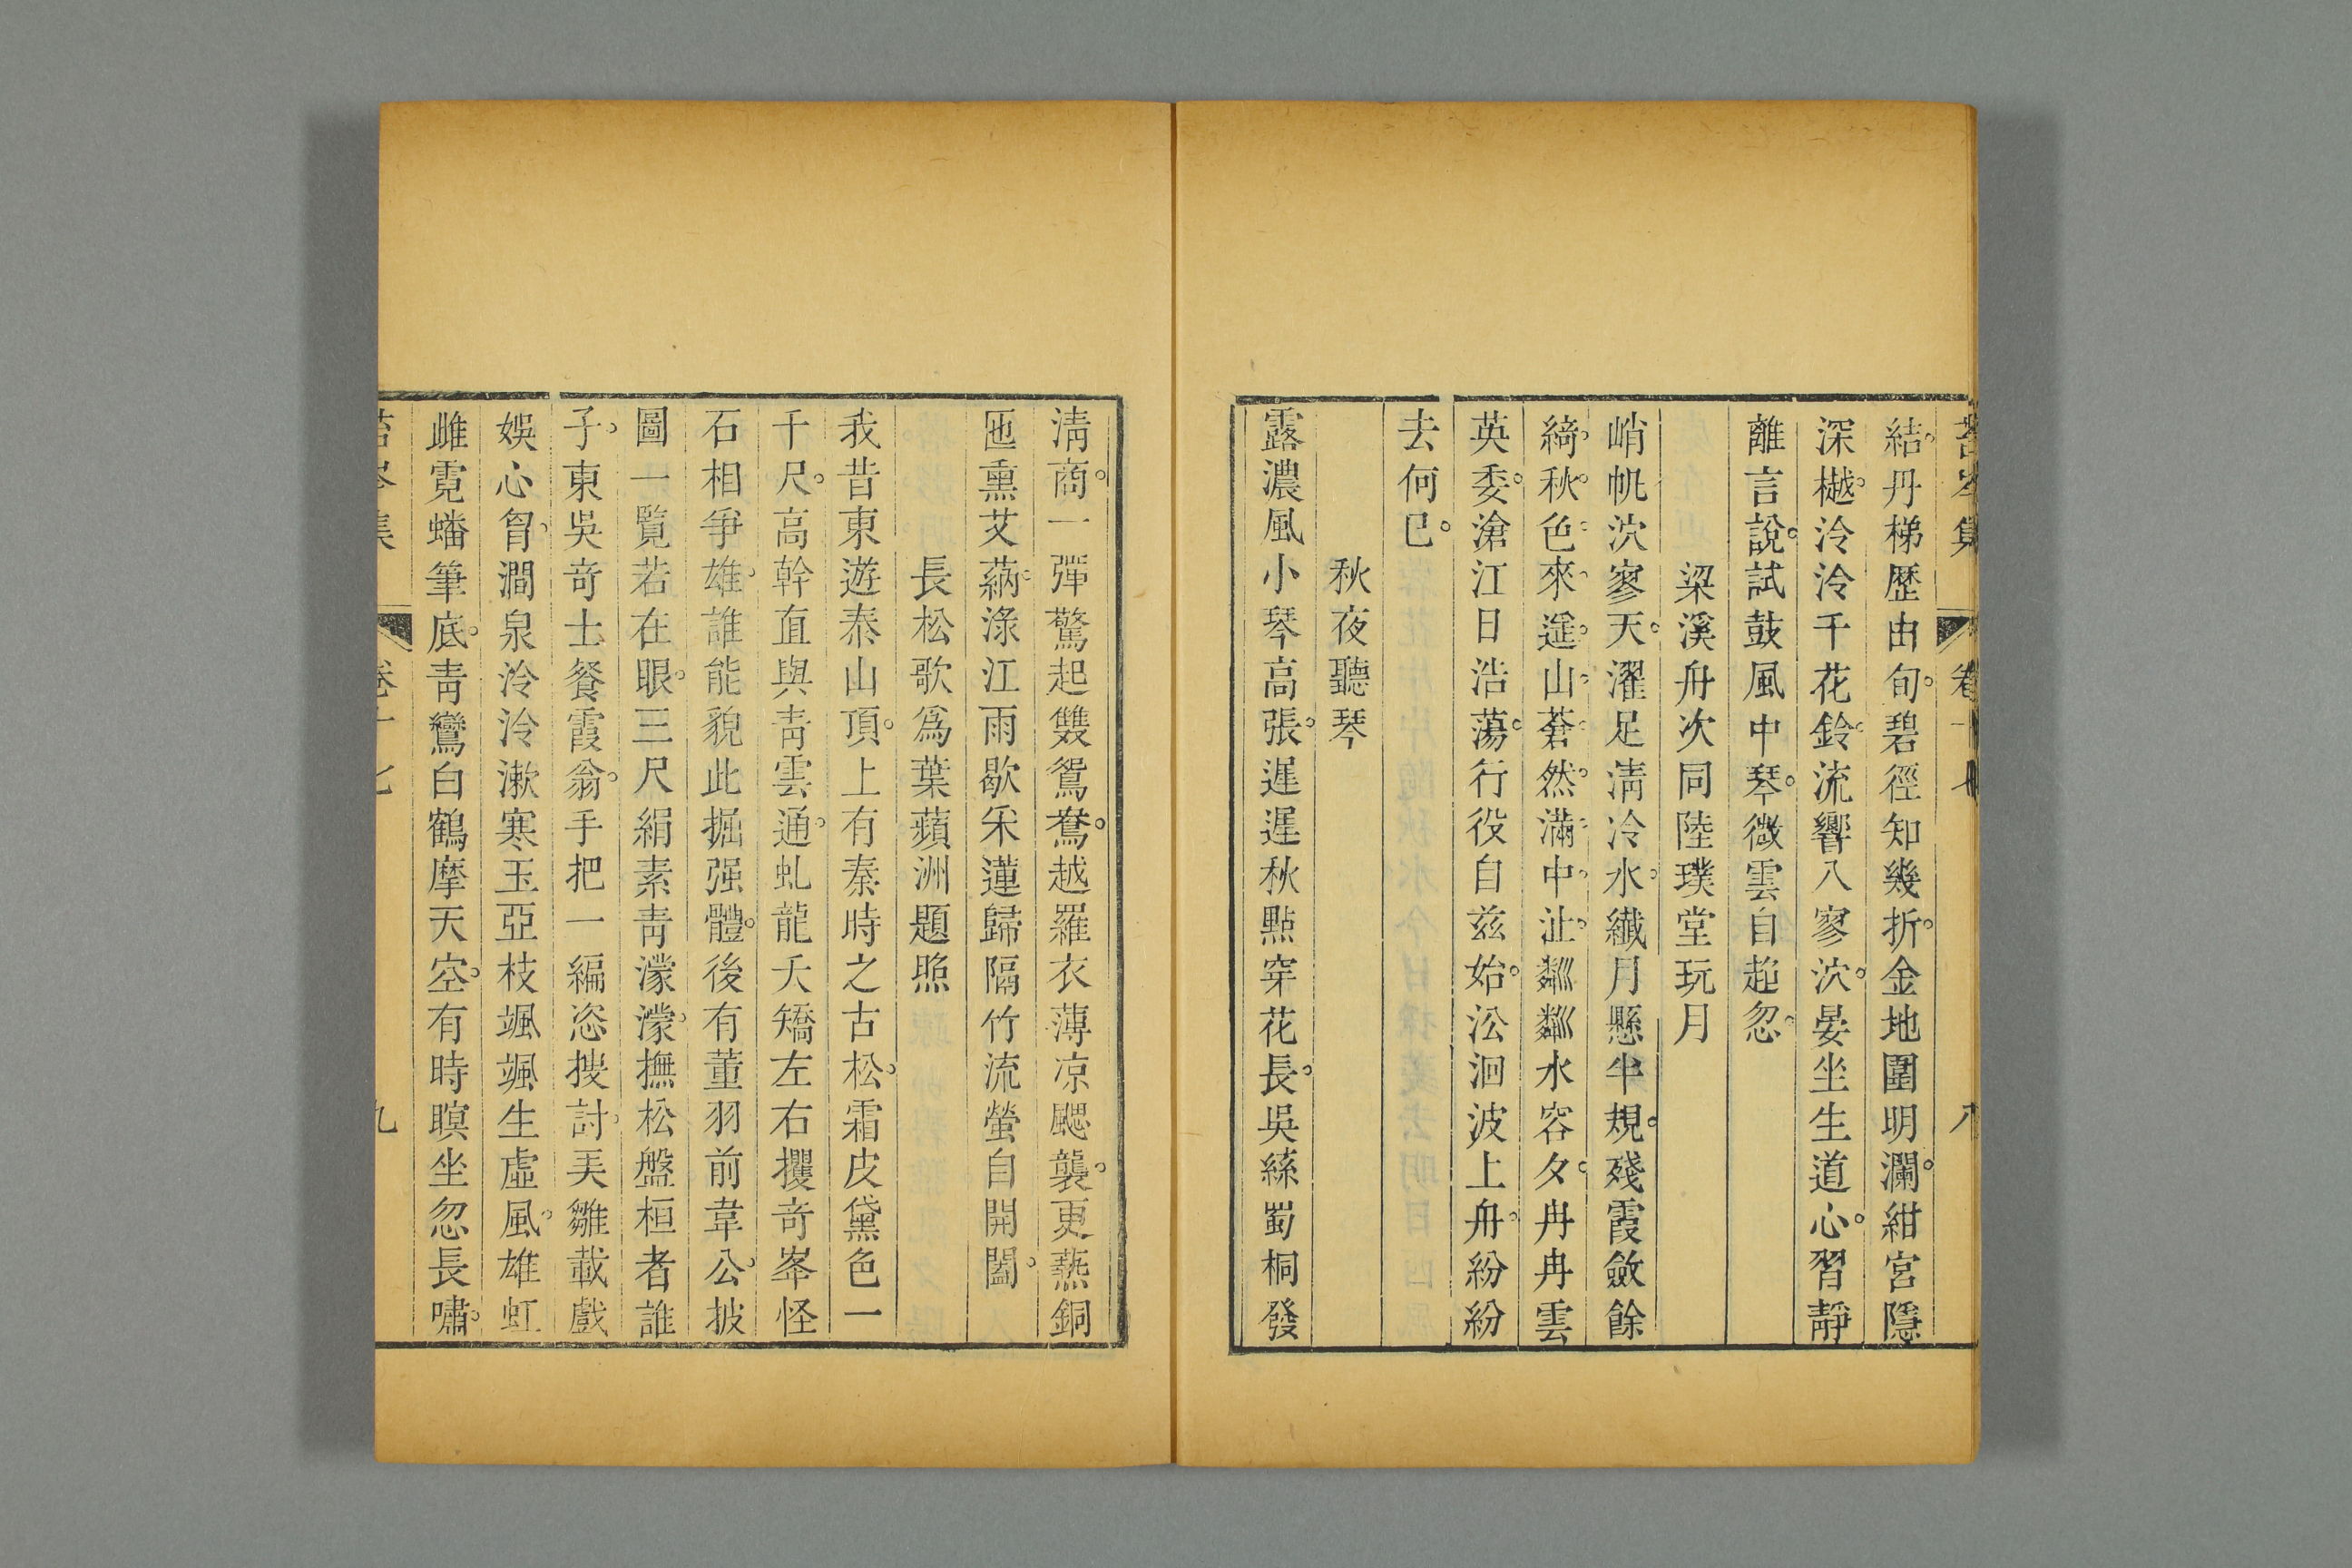 苔岑集 卷十七 八
結丹梯歷由旬碧徑知幾折金地圍明瀾紺宮隱
深樾泠泠千花鈴流響八寥泬晏坐生道心習靜
離言說試鼓風中琴微雲自起忽
梁溪舟次同陸璞堂玩月
峭帆泬寥天濯足清冷水纖月懸半規殘霞斂餘
綺秋色來遥山蒼然滿中沚粼粼水容夕冉冉雲
英委滄江日浩蕩行役自兹始㳂洄波上舟紛紛
去何已
秋夜聽琴
露濃風小琴高張遲遲秋點穿花長吳絲蜀桐發
清商一彈驚起雙鴛鴦越羅衣薄凉颸襲更爇銅
匜熏艾蒳渌江雨歇采蓮歸隔竹流螢自開闔
長松歌爲葉蘋洲題照
我昔東遊泰山頂上有秦時之古松霜皮黛色一
千尺高幹直與靑雲通虬龍夭矯左右攫奇峯怪
石相爭雄誰能貌此掘强體後有董羽前韋公披
圖一覽若在眼三尺絹素靑濛濛撫松盤桓者誰
子東吳奇士餐霞翁手把一編恣搜討美雛載戲
娛心胷澗泉泠泠漱寒玉亞枝颯颯生虛風雄虹
雌霓蟠筆底靑鸞白鶴摩天空有時瞑坐忽長嘯
苔岑集 卷十七 九